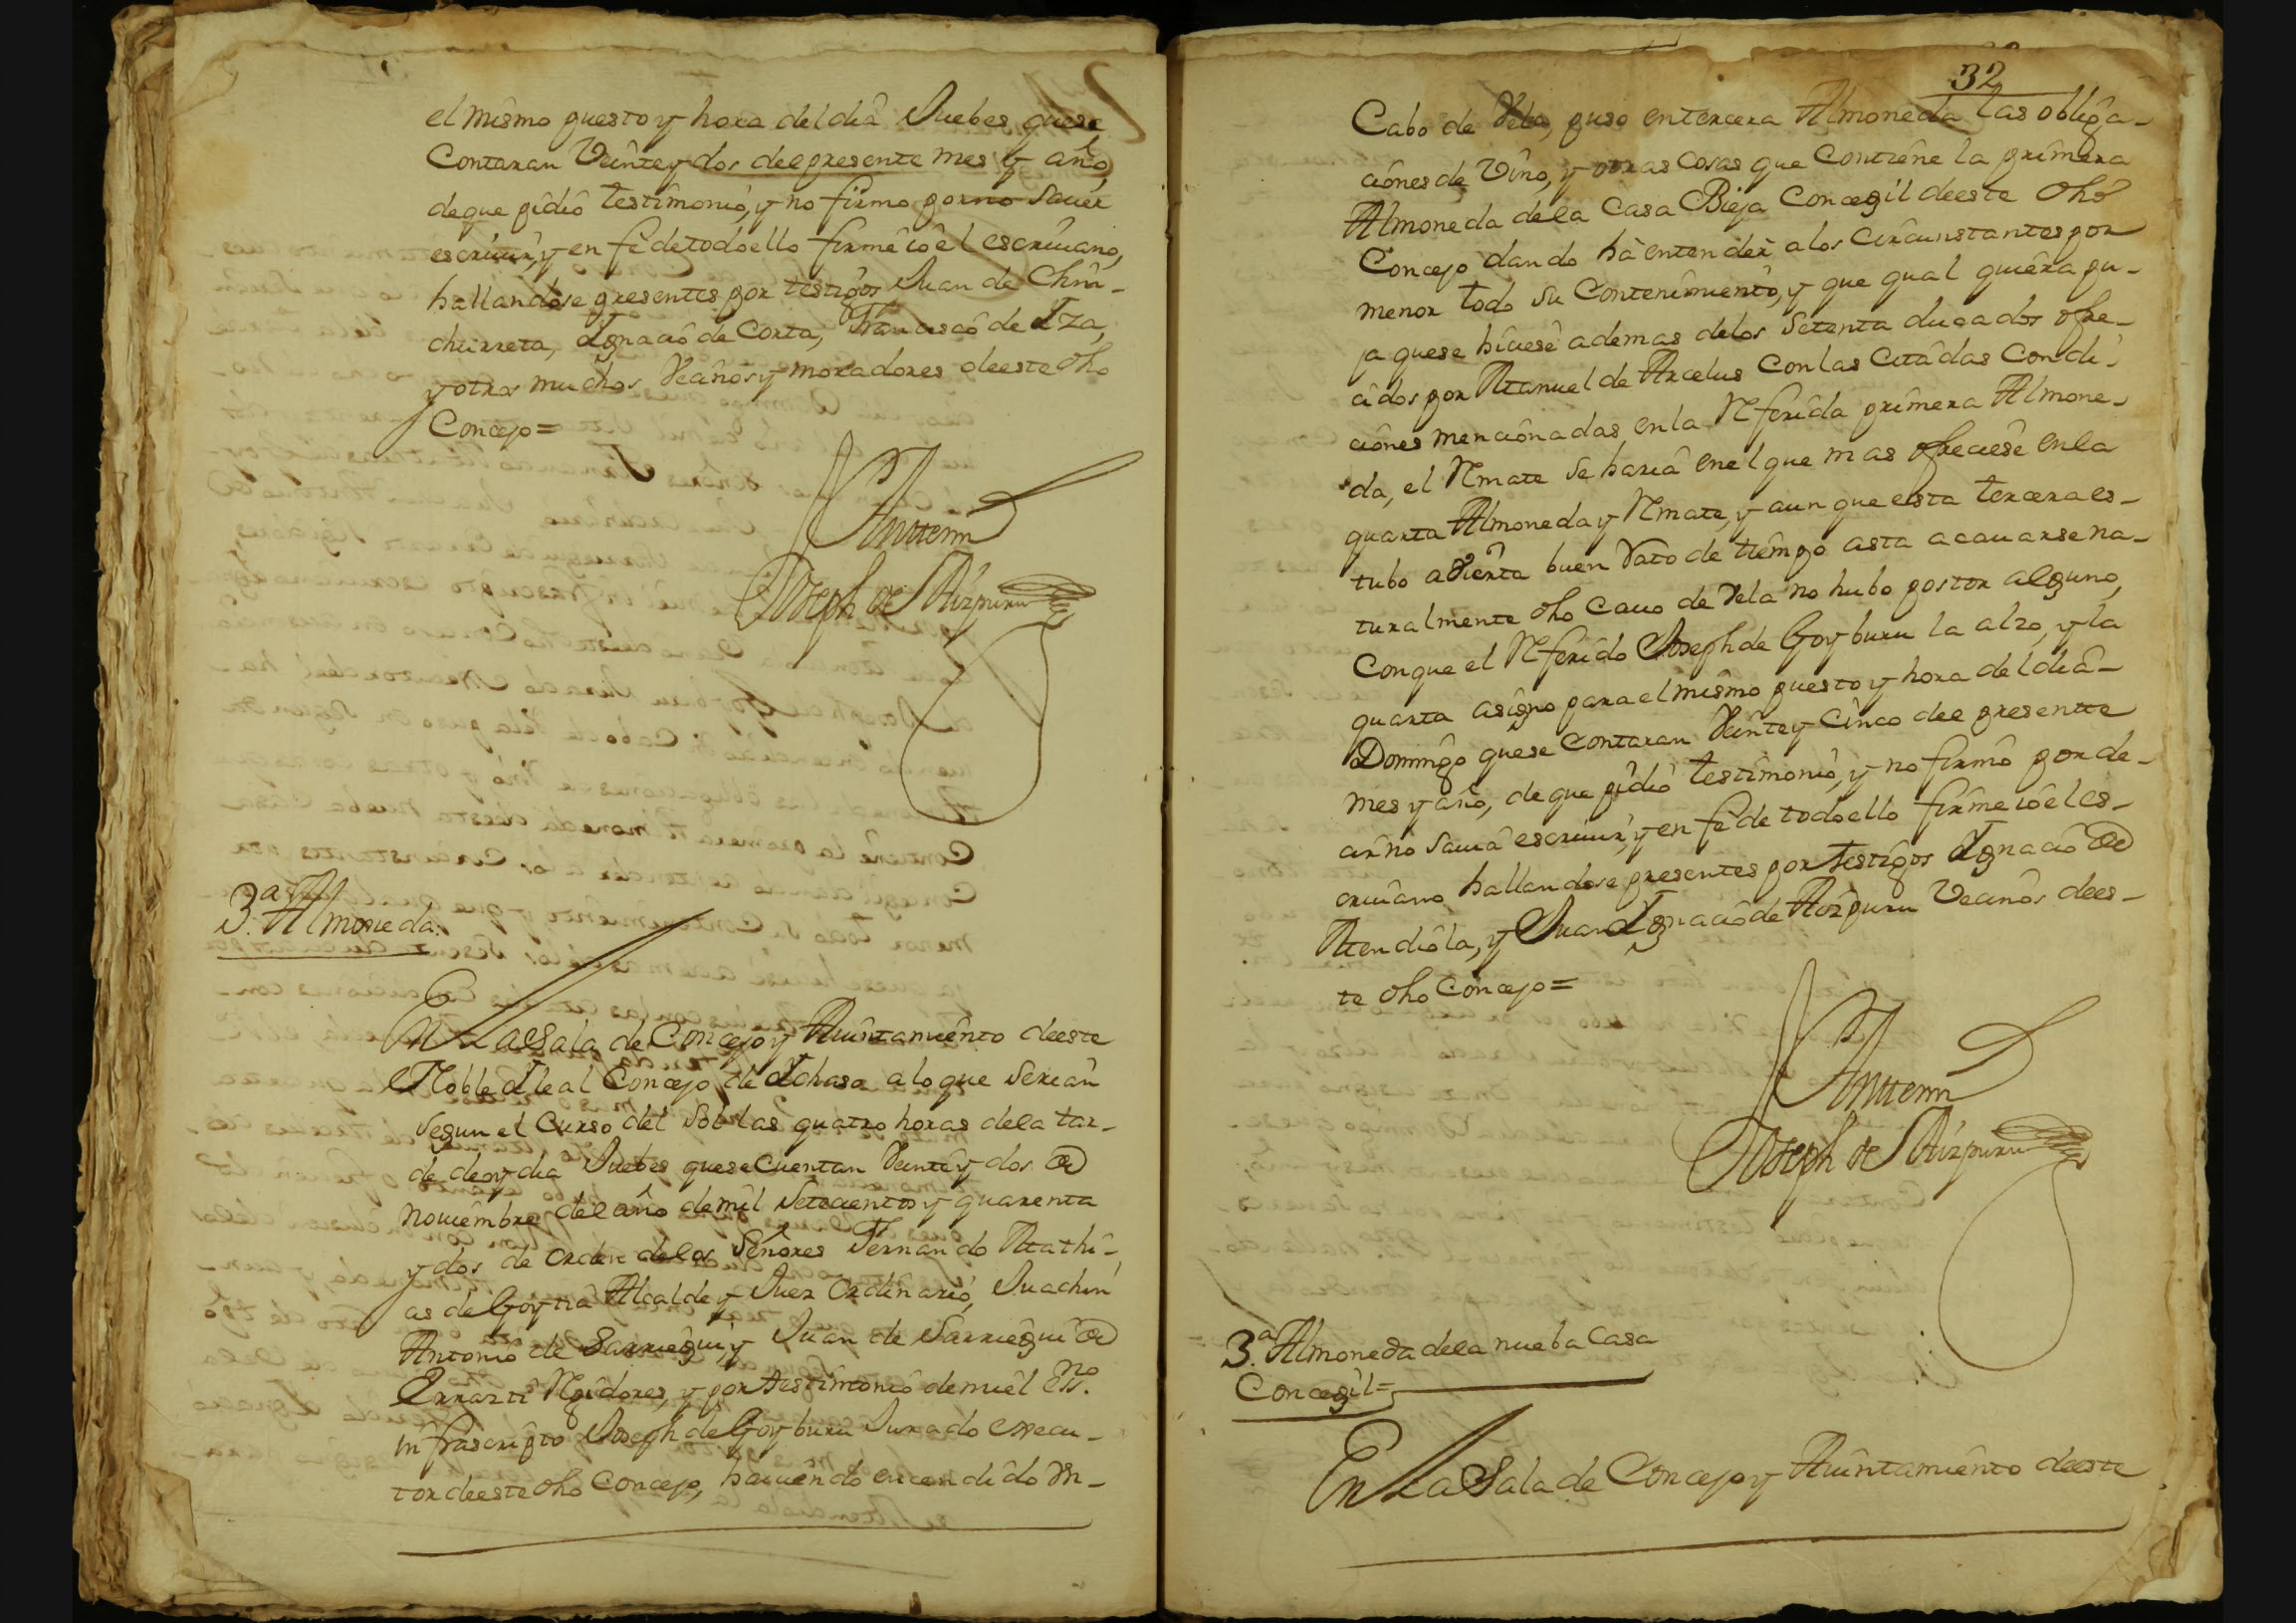 el mismo puesto y hora del dia Juebes que se
Contaran Veinte y dos del presente mes y año,
de que pidio testimonio, y no firmo por no saver
escriuir, y en fe de todo ello firme io el escriuano,
hallandose presentes por testigos Juan de Chin-
churreta, Ignacio de Corta, Francisco de Iza,
y otros muchos Vecinos y moradores de este dho
Concejo =
Antemi
Joseph de Aizpuru
3.ª Almoneda.
En La Sala de Concejo y Aiuntamiento de este
Noble y leal Concejo de Ichaso a lo que serian
segun el Curso del Sol las quatro horas de la tar-
de de oy dia Juebes que se Cuentan Veinte y dos de
Nouiembre del año de mil setecientos y quarenta
y dos de orden de los Señores Fernando Mathi-
as de Goytia Alcalde y Juez Ordinario, Juachin
Antonio de Sarriegui, y Juan de Sarriegui de
Errazti Rejidores, y por testimonio de mi el Ess.no
infrascripto Joseph de Goyburu Jurado execu-
tor de este dho Concejo, hauiendo encendido un
32
Cabo de Vela, puso en tercera Almoneda las obliga-
ciones de Vino, y otras cosas que Contiene la primera
Almoneda de la Casa Bieja Concegil de este dho
Concejo dando ha entender a los Circunstantes por
menor todo su Contenimiento, y que qual quiera pu-
ja que se hiciese ademas de los Setenta ducados ofre-
cidos por Manuel de Arcelus Con las Citadas Condi-
ciones mencionadas en la Referida primera Almone-
da, el Remate se haria en el que mas ofreciese en la
quarta Almoneda y Remate, y aun que esta tercera es-
tubo avierta buen Rato de tiempo asta acauarse na-
turalmente dho Cauo de Vela no hubo postor alguno,
Con que el Referido Joseph de Goyburu la alzo, y la
quarta asigno para el mismo puesto y hora del dia
Domingo que se Contaran Veinte y Cinco del presente
mes y año, de que pidio testimonio, y no firmo por de-
cir no sauia escriuir, y en fe de todo ello firme io el es-
criuano hallandose presentes por testigos Ignacio de
Mendiola, y Juan Ignacio de Aizpuru Vecinos de es-
te dho Concejo =
Antemi
Joseph de Aizpuru
3.ª Almoneda de la nueba Casa
Concegil =
En La Sala de Concejo y Aiuntamiento de este